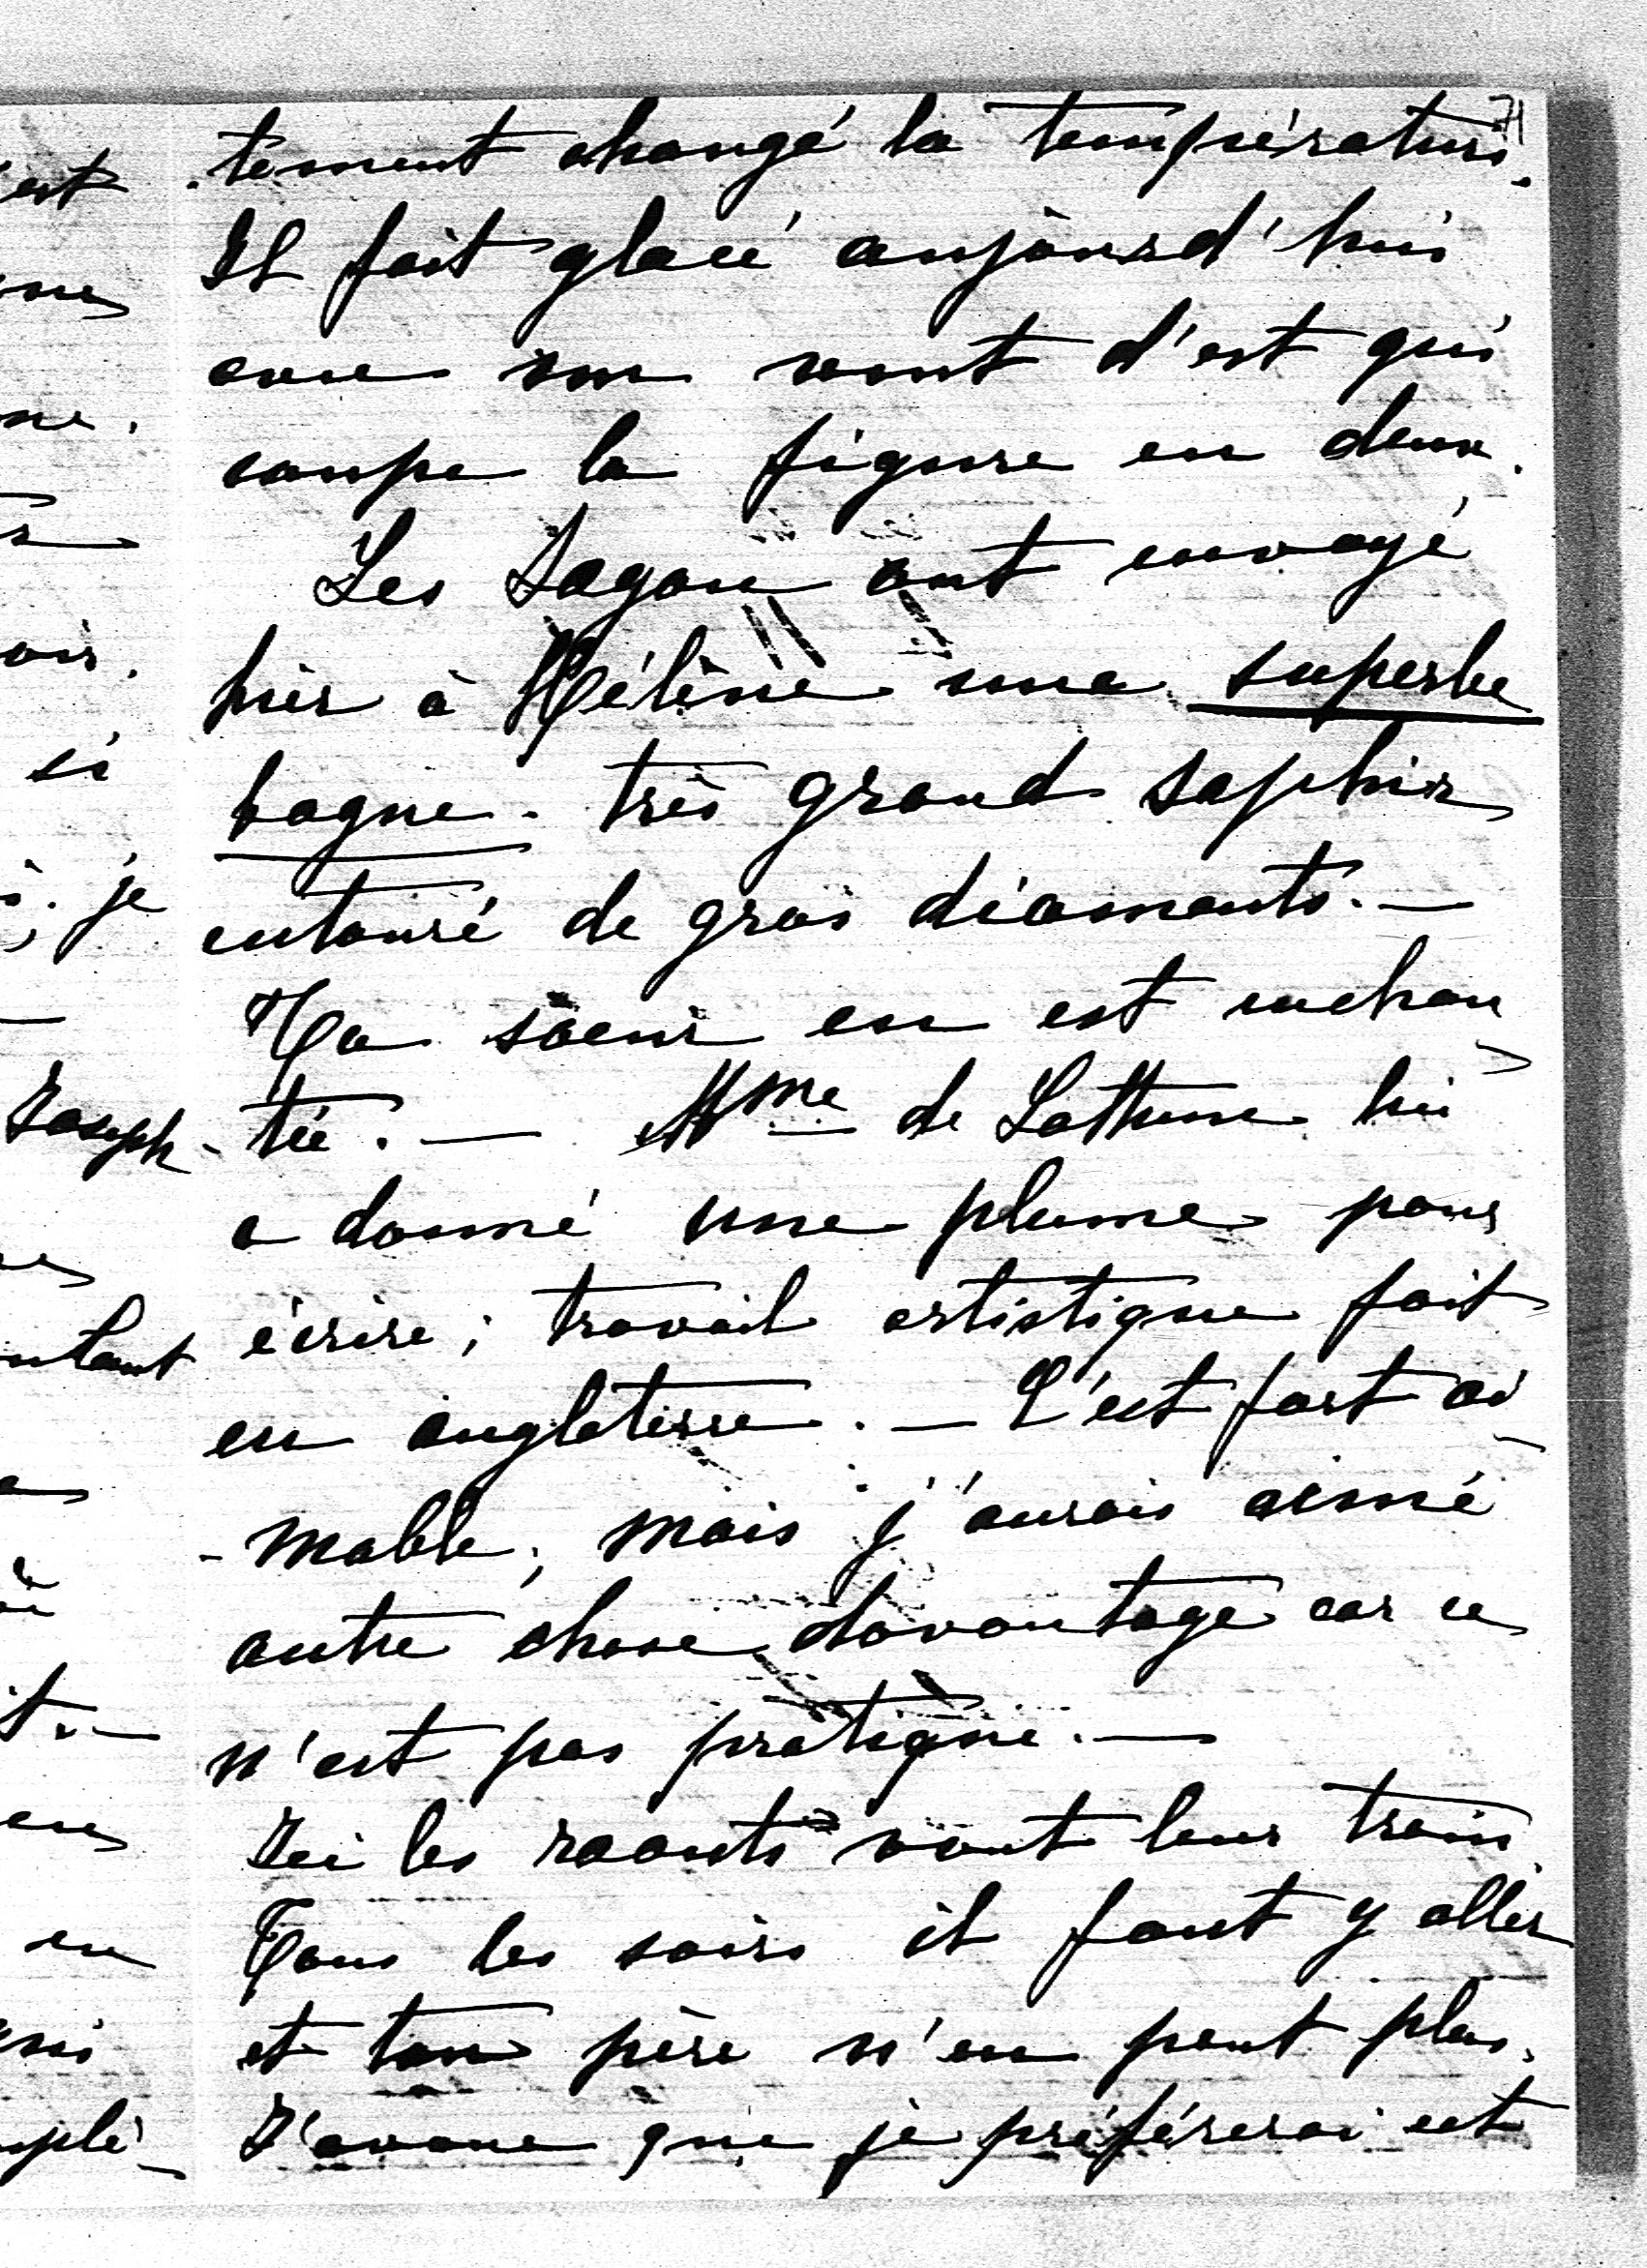 71
tement changé la température.
Il fait glacé aujourd'hui
avec un vent d'est qui
coupe la figure en deux.
Les Sagan ont envoyé
hier à Hélène une superbe
bague. très grand saphir
entouré de gros diamants. —
Ta sœur en est enchan
-tée. — Mme de Lattune lui
a donné une plume pour
écrire ; travail artistique fait
en angleterre. — C'est fort ai
-mable, mais j'aurais aimé
autre chose davantage car ce
n'est pas pratique. —
Ici les raouts vont leur train
Tous les soirs il faut y aller
et ton père n'en peut plus.
J'avoue que je préférerai cet
est
si
je
Joseph
en